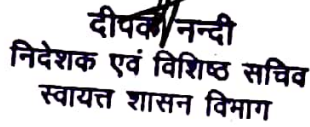 दीपक नन्दी
निदेशक एवं विशिष्ठ सचिव
स्वायत्त शासन विभाग